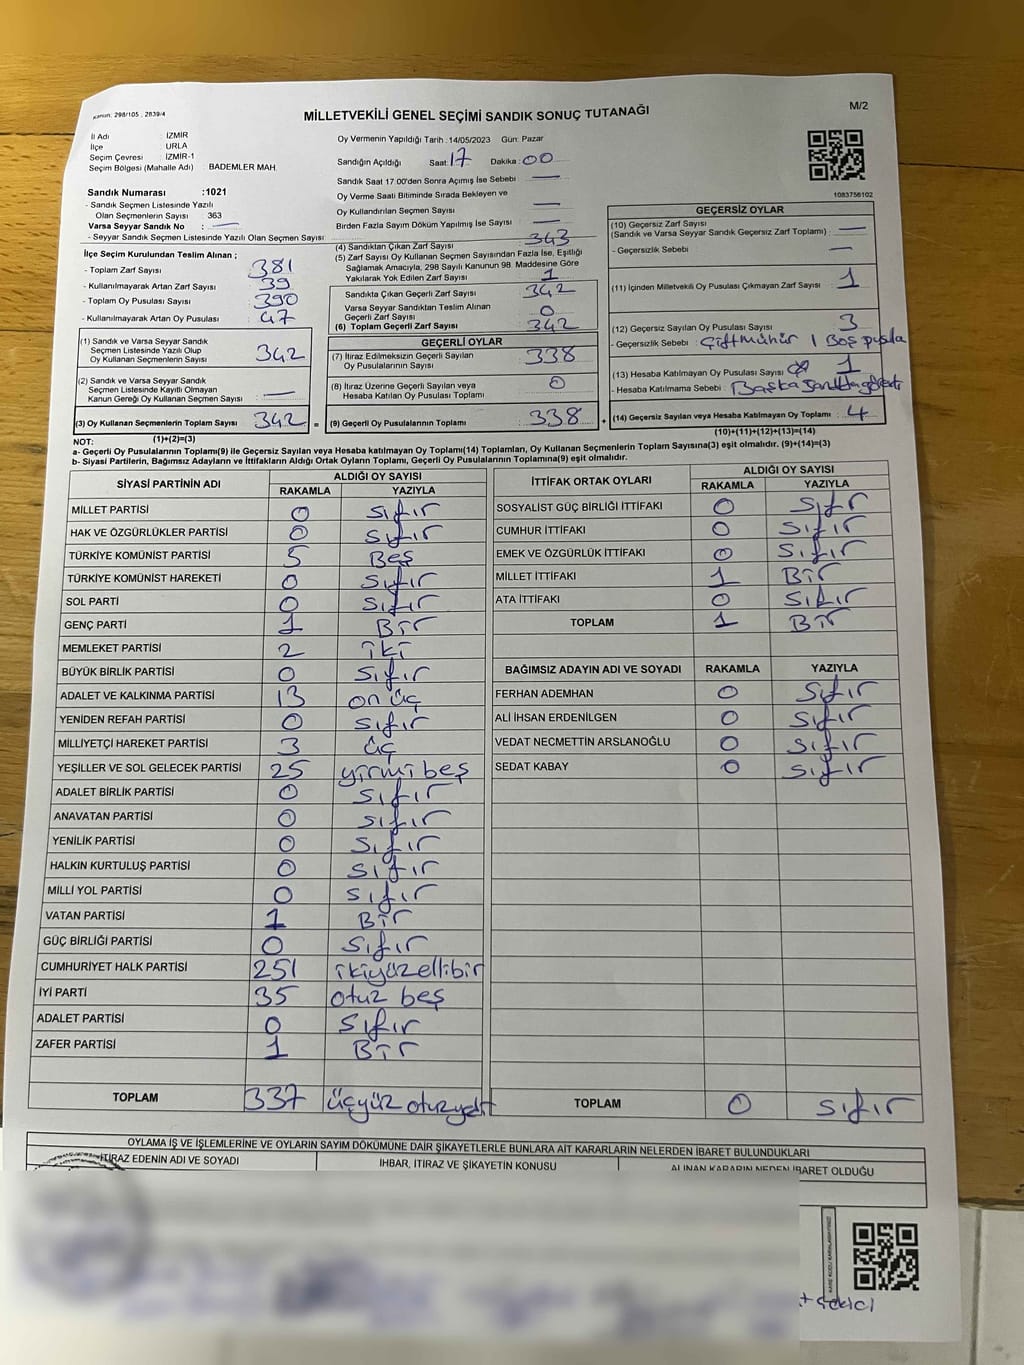 Kanun: 298/105 , 2839/4
MİLLETVEKİLİ GENEL SEÇİMİ SANDIK SONUÇ TUTANAĞI
M/2
İl Adı : İZMİR
İlçe : URLA
Seçim Çevresi : İZMİR-1
Seçim Bölgesi (Mahalle Adı) : BADEMLER MAH.
Sandık Numarası :1021
- Sandık Seçmen Listesinde Yazılı
Olan Seçmenlerin Sayısı : 363
Varsa Seyyar Sandık No : —
- Seyyar Sandık Seçmen Listesinde Yazılı Olan Seçmen Sayısı
Oy Vermenin Yapıldığı Tarih :14/05/2023 Gün: Pazar
Sandığın Açıldığı Saat: 17 Dakika : 00
Sandık Saat 17:00'den Sonra Açımış İse Sebebi : —
Oy Verme Saati Bitiminde Sırada Bekleyen ve
Oy Kullandırılan Seçmen Sayısı —
Birden Fazla Sayım Döküm Yapılmış İse Sayısı : —
1083756102
İlçe Seçim Kurulundan Teslim Alınan ;
- Toplam Zarf Sayısı : 381
- Kullanılmayarak Artan Zarf Sayısı : 39
- Toplam Oy Pusulası Sayısı : 390
- Kullanılmayarak Artan Oy Pusulası : 47
(1) Sandık ve Varsa Seyyar Sandık
Seçmen Listesinde Yazılı Olup
Oy Kullanan Seçmenlerin Sayısı : 342
(2) Sandık ve Varsa Seyyar Sandık
Seçmen Listesinde Kayıtlı Olmayan
Kanun Gereği Oy Kullanan Seçmen Sayısı : —
(3) Oy Kullanan Seçmenlerin Toplam Sayısı : 342 =
(1)+(2)=(3)
(4) Sandıktan Çıkan Zarf Sayısı : 343
(5) Zarf Sayısı Oy Kullanan Seçmen Sayısından Fazla İse, Eşitliği
Sağlamak Amacıyla, 298 Sayılı Kanunun 98. Maddesine Göre
Yakılarak Yok Edilen Zarf Sayısı : 1
Sandıkta Çıkan Geçerli Zarf Sayısı : 342
Varsa Seyyar Sandıktan Teslim Alınan
Geçerli Zarf Sayısı : 0
(6) Toplam Geçerli Zarf Sayısı : 342
GEÇERLİ OYLAR
(7) İtiraz Edilmeksizin Geçerli Sayılan
Oy Pusulalarının Sayısı : 338
(8) İtiraz Üzerine Geçerli Sayılan veya
Hesaba Katılan Oy Pusulası Toplamı : 0
(9) Geçerli Oy Pusulalarının Toplamı : 338 +
GEÇERSİZ OYLAR
(10) Geçersiz Zarf Sayısı
(Sandık ve Varsa Seyyar Sandık Geçersiz Zarf Toplamı) : —
- Geçersizlik Sebebi : —
(11) İçinden Milletvekili Oy Pusulası Çıkmayan Zarf Sayısı : 1
(12) Geçersiz Sayılan Oy Pusulası Sayısı : 3
- Geçersizlik Sebebi : Çift Mühür 1 Boş pusula
(13) Hesaba Katılmayan Oy Pusulası Sayısı : 1
- Hesaba Katılmama Sebebi : Başka
(14) Geçersiz Sayılan veya Hesaba Katılmayan Oy Toplamı : 4
(10)+(11)+(12)+(13)=(14)
NOT:
a- Geçerli Oy Pusulalarının Toplamı(9) ile Geçersiz Sayılan veya Hesaba katılmayan Oy Toplamı(14) Toplamları, Oy Kullanan Seçmenlerin Toplam Sayısına(3) eşit olmalıdır. (9)+(14)=(3)
b- Siyasi Partilerin, Bağımsız Adayların ve İttifakların Aldığı Ortak Oyların Toplamı, Geçerli Oy Pusulalarının Toplamına(9) eşit olmalıdır.
SİYASİ PARTİNİN ADI ALDIĞI OY SAYISI
RAKAMLA YAZIYLA
MİLLET PARTİSİ 0 Sıfır
HAK VE ÖZGÜRLÜKLER PARTİSİ 0 Sıfır
TÜRKİYE KOMÜNİST PARTİSİ 5 Beş
TÜRKİYE KOMÜNİST HAREKETİ 0 Sıfır
SOL PARTİ 0 Sıfır
GENÇ PARTİ 1 Bir
MEMLEKET PARTİSİ 2 iki
BÜYÜK BİRLİK PARTİSİ 0 Sıfır
ADALET VE KALKINMA PARTİSİ 13 on üç
YENİDEN REFAH PARTİSİ 0 Sıfır
MİLLİYETÇİ HAREKET PARTİSİ 3 üç
YEŞİLLER VE SOL GELECEK PARTİSİ 25 yirmi beş
ADALET BİRLİK PARTİSİ 0 Sıfır
ANAVATAN PARTİSİ 0 Sıfır
YENİLİK PARTİSİ 0 Sıfır
HALKIN KURTULUŞ PARTİSİ 0 Sıfır
MİLLİ YOL PARTİSİ 0 Sıfır
VATAN PARTİSİ 1 Bir
GÜÇ BİRLİĞİ PARTİSİ 0 Sıfır
CUMHURİYET HALK PARTİSİ 251 ikiyüzellibir
İYİ PARTİ 35 otuz beş
ADALET PARTİSİ 0 Sıfır
ZAFER PARTİSİ 1 Bir
TOPLAM 337 üçyüz otuzyedi
İTTİFAK ORTAK OYLARI ALDIĞI OY SAYISI
RAKAMLA YAZIYLA
SOSYALİST GÜÇ BİRLİĞİ İTTİFAKI 0 Sıfır
CUMHUR İTTİFAKI 0 Sıfır
EMEK VE ÖZGÜRLÜK İTTİFAKI 0 Sıfır
MİLLET İTTİFAKI 1 Bir
ATA İTTİFAKI 0 Sıfır
TOPLAM 1 Bir
BAĞIMSIZ ADAYIN ADI VE SOYADI RAKAMLA YAZIYLA
FERHAN ADEMHAN 0 Sıfır
ALİ İHSAN ERDENİLGEN 0 Sıfır
VEDAT NECMETTİN ARSLANOĞLU 0 Sıfır
SEDAT KABAY 0 Sıfır
TOPLAM 0 Sıfır
OYLAMA İŞ VE İŞLEMLERİNE VE OYLARIN SAYIM DÖKÜMÜNE DAİR ŞİKAYETLERLE BUNLARA AİT KARARLARIN NELERDEN İBARET BULUNDUKLARI
İTİRAZ EDENİN ADI VE SOYADI İHBAR, İTİRAZ VE ŞİKAYETİN KONUSU ALINAN KARARIN NEDEN İBARET OLDUĞU